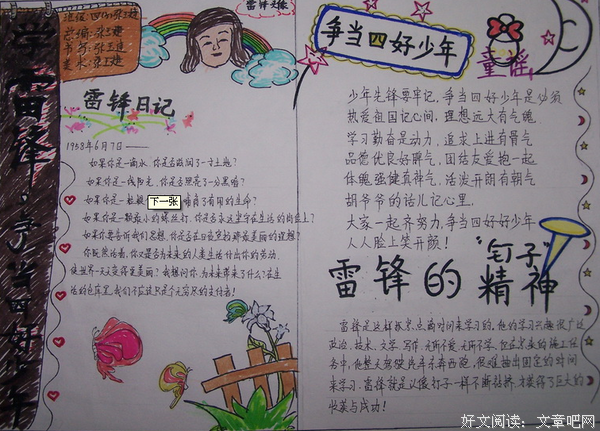 学雷锋·争当四好少年
雷锋头像
雷锋日记
1958年6月7日——
如果你是一滴水,你是否滋润了一寸土地?
如果你是一线阳光,你是否照亮了一分黑暗?
如果你是一粒粮 有用的生命?
下一张
如果你是一颗最小的螺丝钉,你是否永远坚守在生活的岗位上?
如果你要告诉我们
你既然活着,你又是否为未来的人类生活付出你的劳动,
使世界一天天变得更美丽?我想问你,为未来带来了什么?在生
活的仓库里,我们不应该只是个无穷尽的支付者!
争当四好少年
童谣
少年先锋要牢记,争当四好少年是必须
热爱祖国记心间,理想远大有气魄
学习勤奋是动力,追求上进有骨气
品德优良好脾气,团结友爱抱一起
体魄强健真神气,活泼开朗有朝气
胡爷爷的话儿记心里,
大家一起齐努力,争当四好好少年
人人脸上笑开颜!
雷锋的“钉子”精神
雷锋是这样 点滴时间来学习的,他的学习兴趣很广泛
政治、技术、文学、写作,无所不爱,无所不学,
务中,他整天驾驶汽车东奔西跑,很难抽出固定的时间
来学习,雷锋就是以像钉子一样不断钻挤,才获得了巨大的
收获与成功!
好文阅读:文章吧网